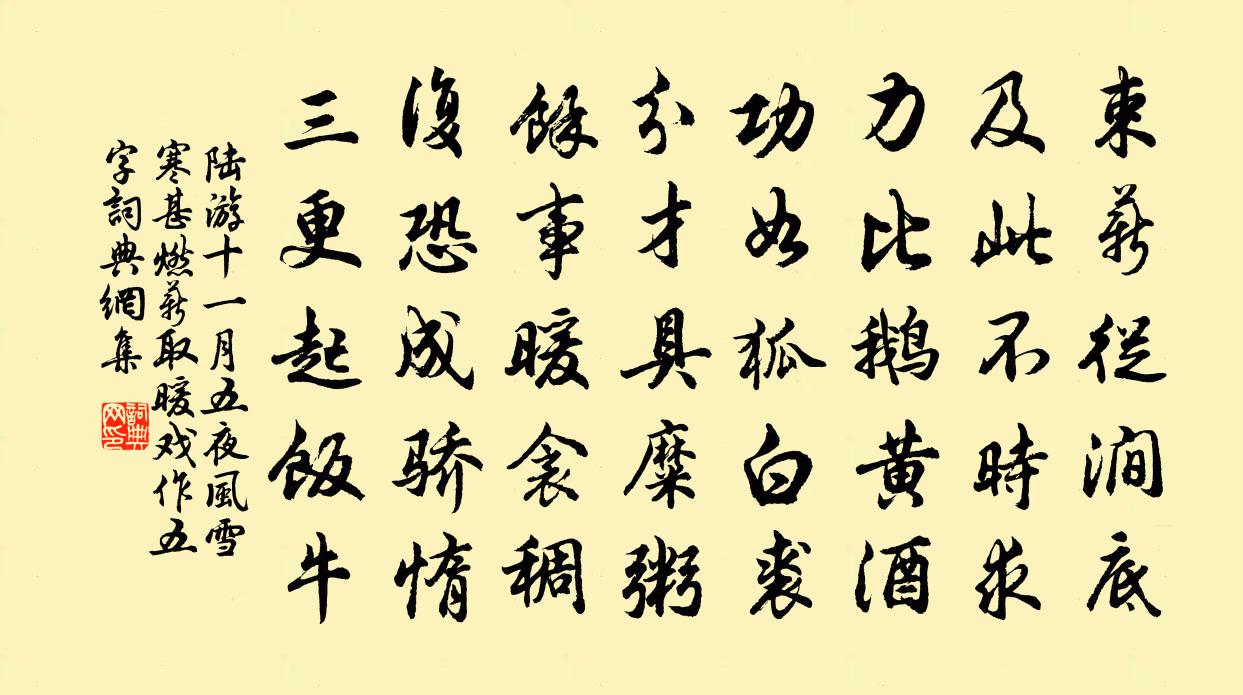 束薪從澗底
及此不時求
力比鹅黄酒
功如狐白裘
分才具糜粥
餘事暖衾稠
復恐成骄惰
三更起飯牛
陆游十一月五夜風雪
寒甚燃薪取暖戏作五
字詞典網集
詞典
网印